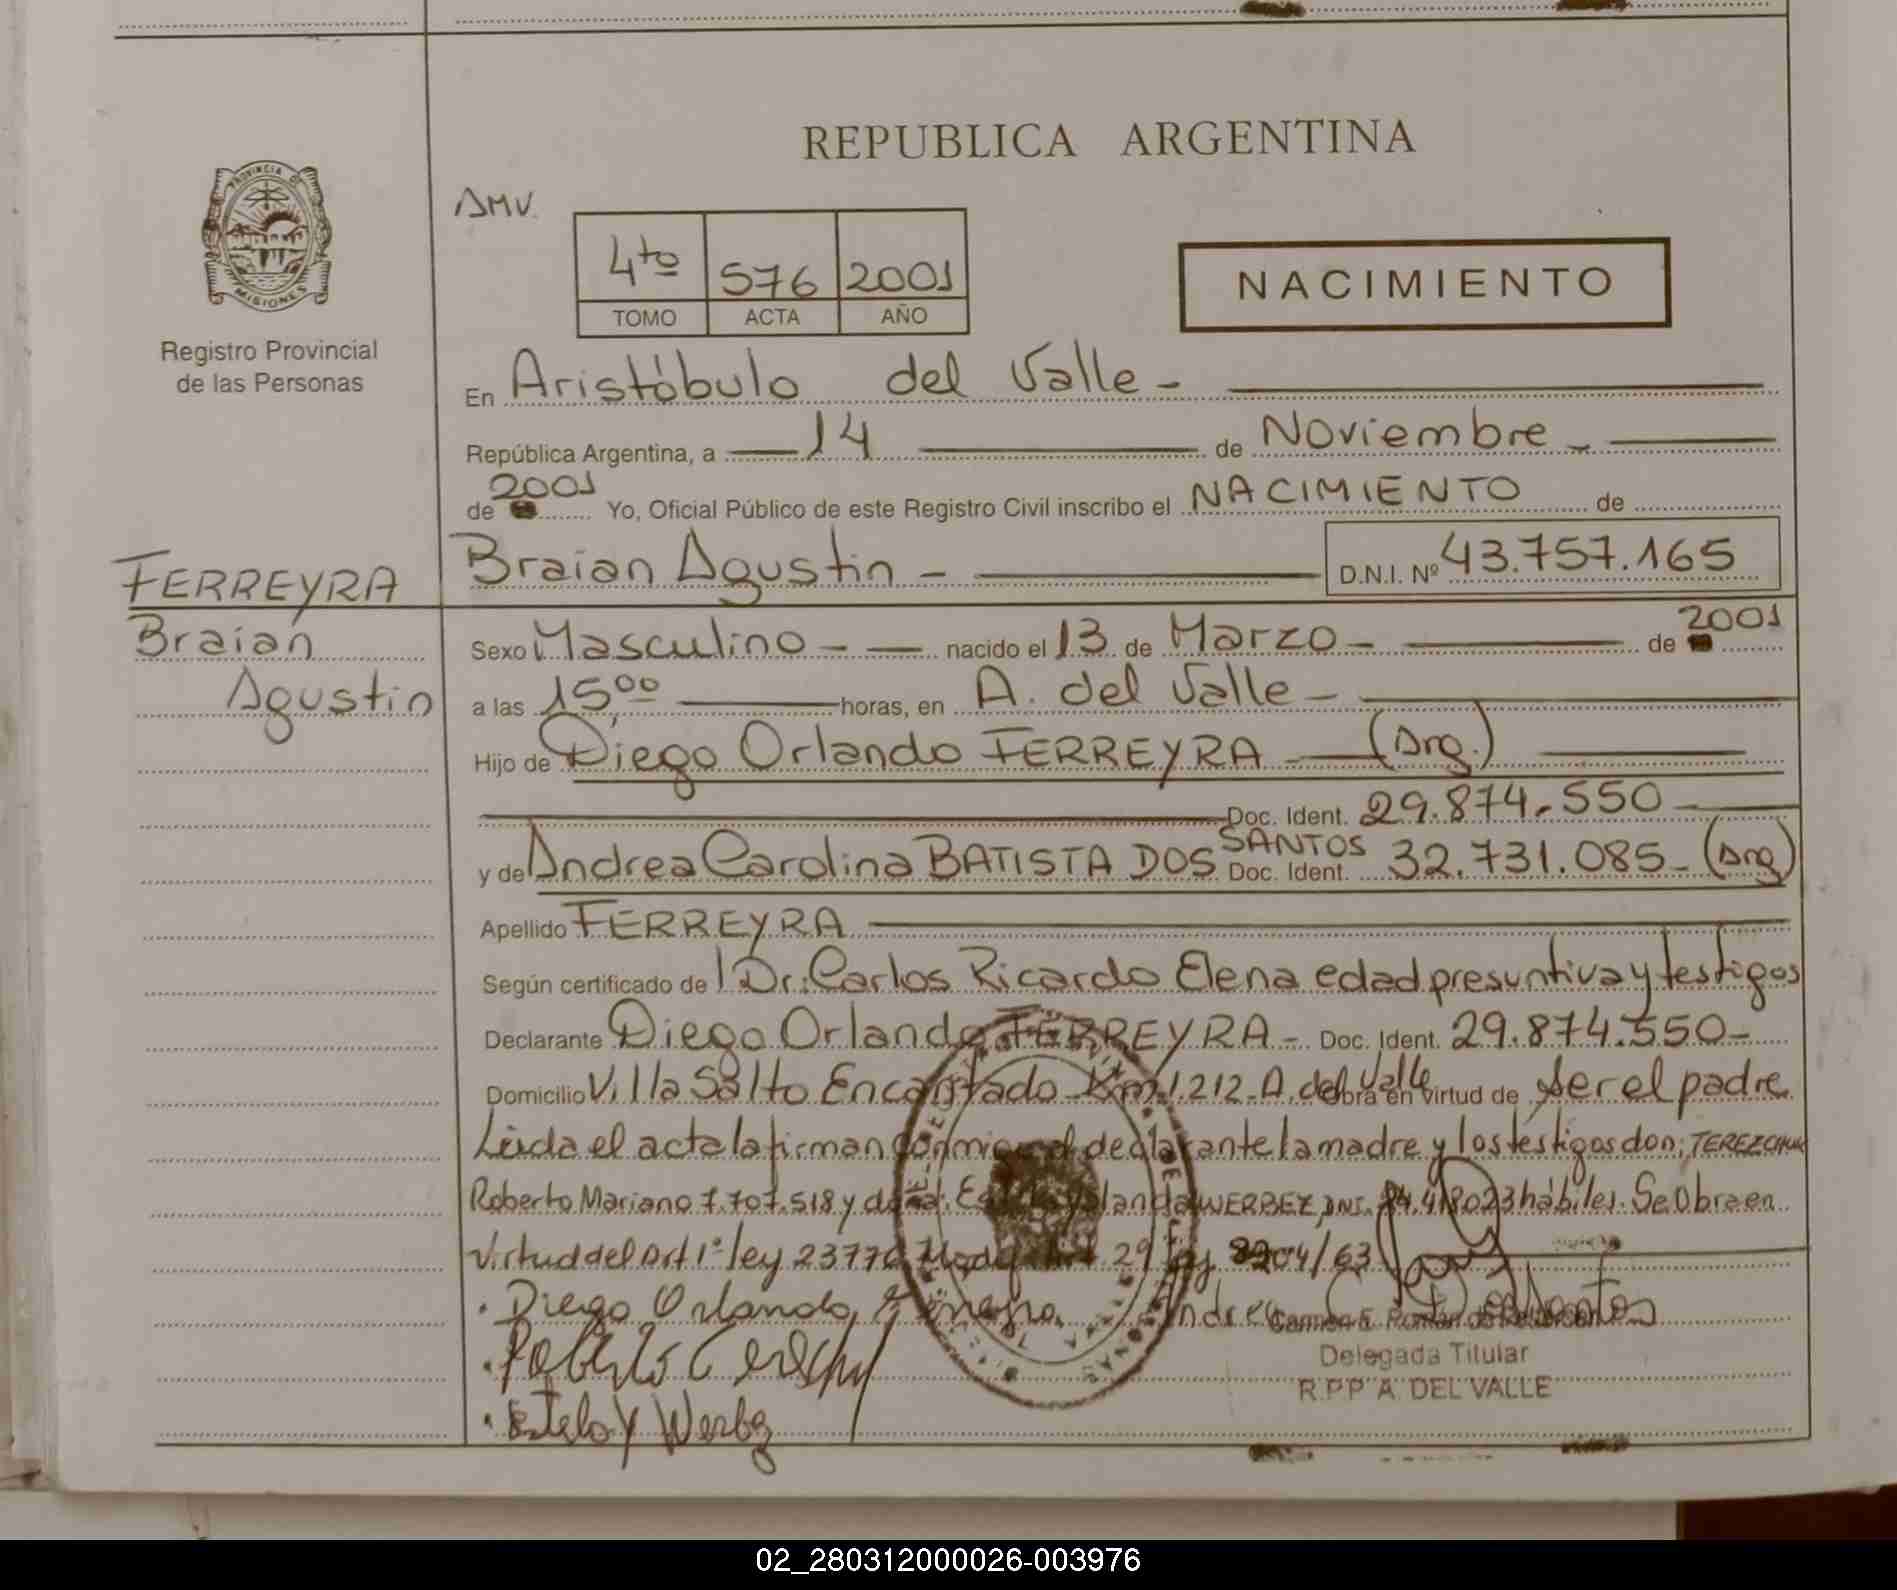 REPUBLICA ARGENTINA
PROVINCIA DE
MISIONES
Registro Provincial
de las Personas
AMV.
4to 576 2001
TOMO ACTA AÑO
NACIMIENTO
En Aristóbulo del Valle -
República Argentina, a 14 de Noviembre -
de 2001 Yo, Oficial Público de este Registro Civil inscribo el NACIMIENTO de
FERREYRA
Braian
Agustin
Braian Agustin - D.N.I. Nº 43.757.165
Sexo Masculino - nacido el 13 de Marzo - de 2001
a las 15,00 horas, en A. del Valle -
Hijo de Diego Orlando FERREYRA (Arg.)
Doc. Ident. 29.874.550
y de Andrea Carolina BATISTA DOS SANTOS Doc. Ident. 32.731.085 - (Arg)
Apellido FERREYRA
Según certificado del Dr: Carlos Ricardo Elena edad presuntiva y testigos
Declarante Diego Orlando FERREYRA - Doc. Ident. 29.874.550 -
Domicilio Villa Salto Encantado Km 1.212 - A. del Valle obra en virtud de ser el padre
Leida el acta la firman conmigo el declarante la madre y los testigos don; TEREZCHUK
Roberto Mariano 7.707.518 y doña: Yolanda WERBEZ, DNI. hábiles. Se Obra en
Virtud del Art 1º ley 29 ley 8204/63
. Diego Orlando Ferreyra. Andrea
. Roberto
. Estela Y
Delegada Titular
R.P.P A. DEL VALLE
02_280312000026-003976